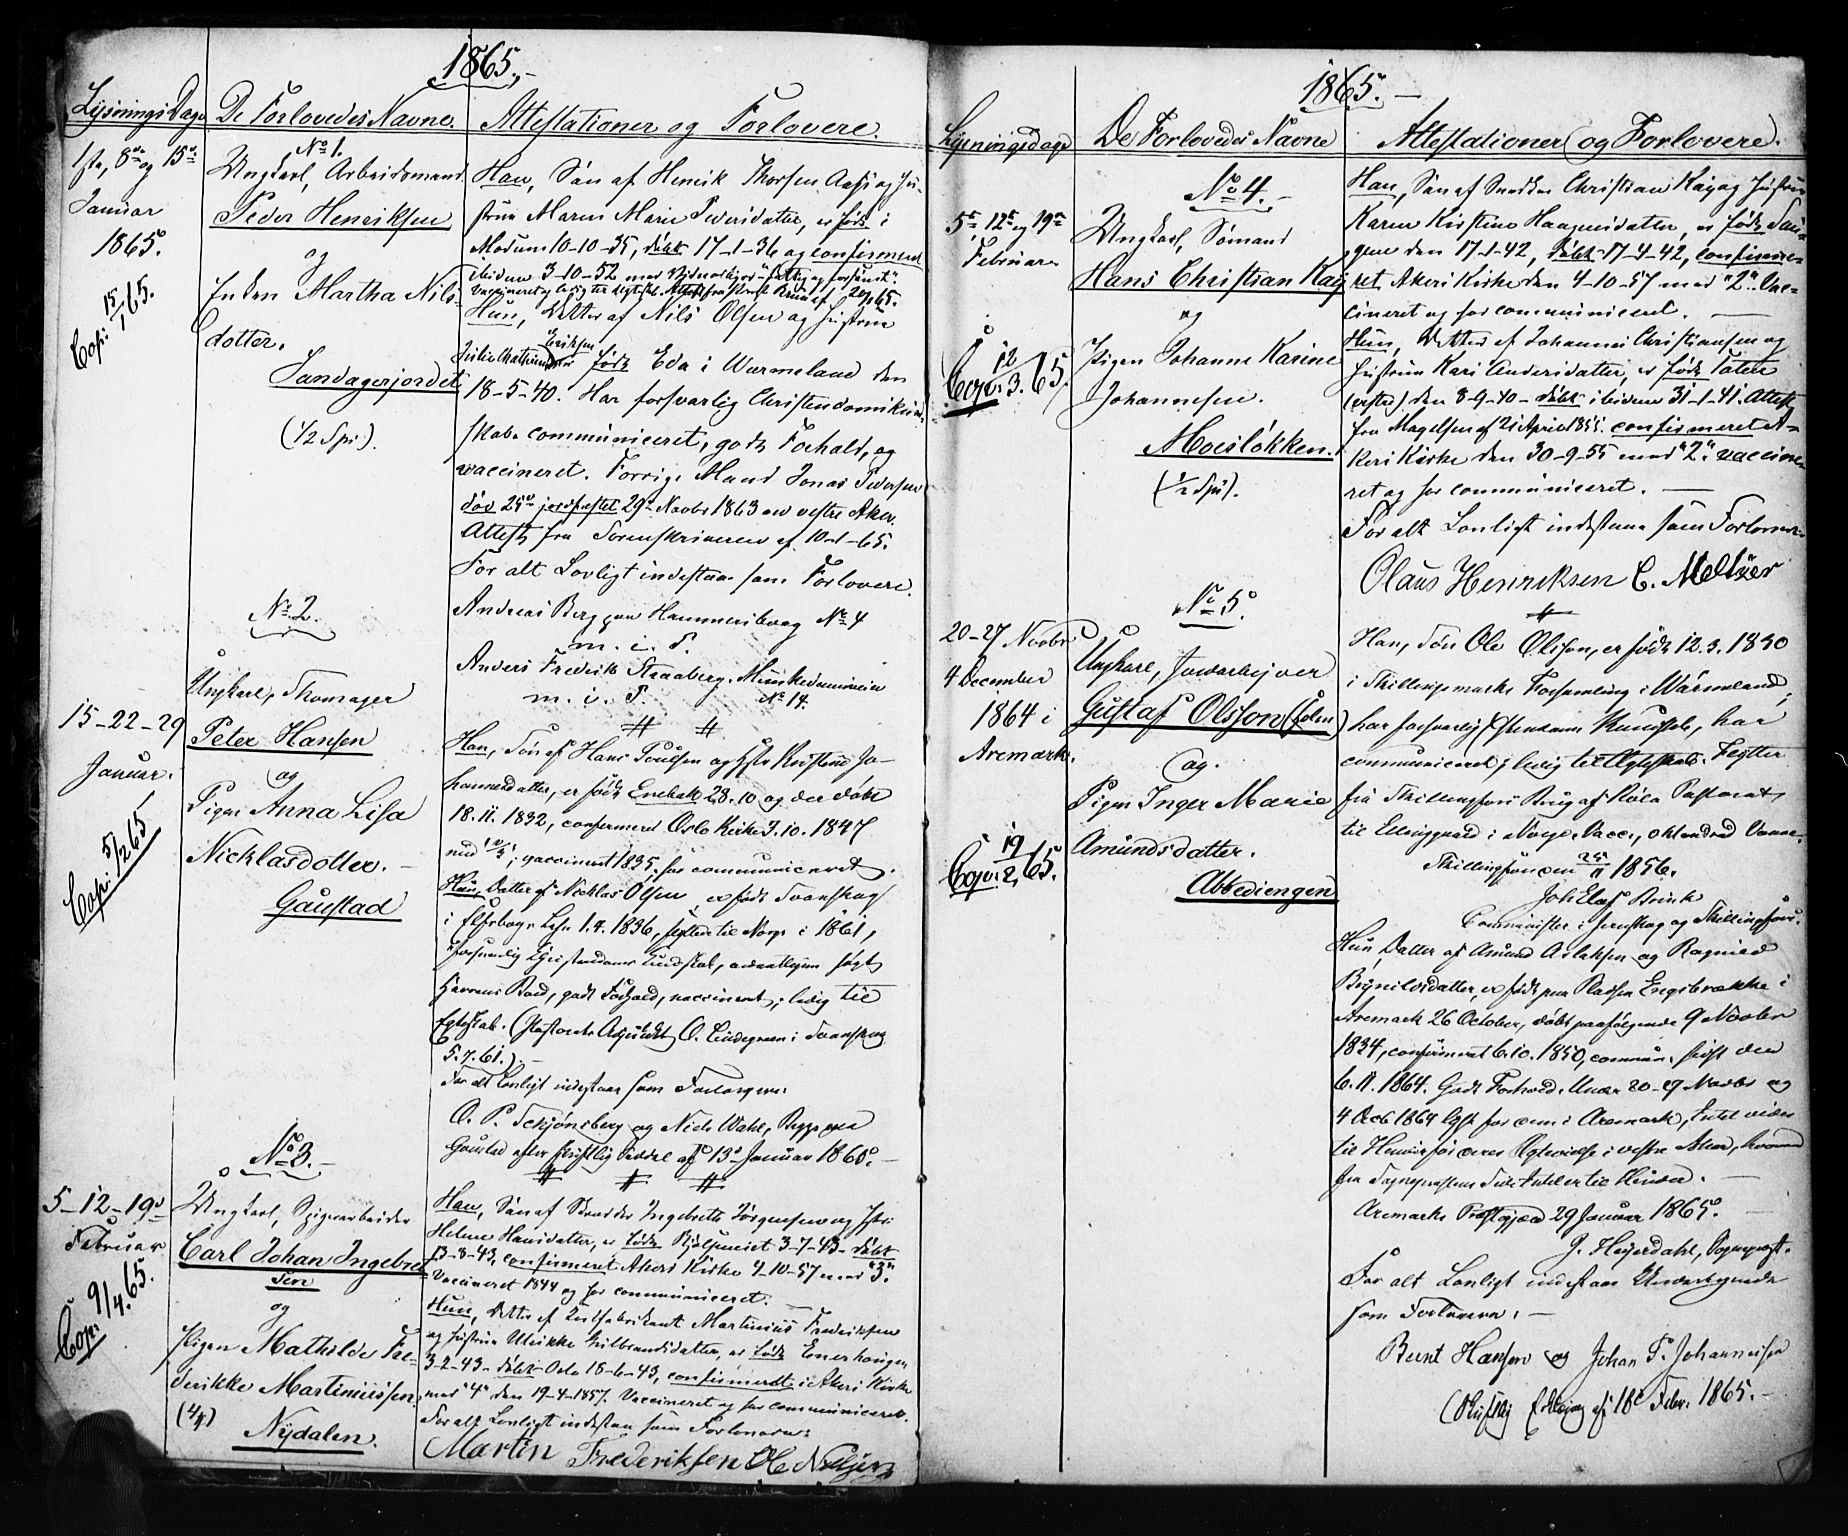 1865.
Lysnings Dage
De Forlovedes Navne.
Attestationer og Forlovere.
1ste, 8de og 15de
Januar
1865.
Cop: 15/1 65.
No 1.
Ungkarl, Arbeidsmand
Peder Henriksen
og
Enken Martha Nils-
dotter.
Sandagerjordet
(1/2 Spd).
Han, Søn af Henrik Thorsen Aas og Hu-
strue Maren Marie Pedersdatter, er født i
Modum 10-10-35, døbt 17-1-36 og confirmeret
ibidem 3-10-52 med
Vaccineret og ledig til Ægteskab. Attest fra
Hun, Datter af Nils Olsen og Hustrue
født Eda i Wermeland den
18-5-40. Har forsvarlig Christendomskund-
skab, communiceret, godt Forhold, og
vaccineret. Forrige Mand Jonas Pedersen
død 25de jordfæstet 29de Novbr 1863 ved vestre Aker.
Attest fra Sorenskriveren af 10-1-65.
For alt Lovligt indestaa som Forlovere.
Andreas Berg paa Hammersborg No 4
m. i. P.
Anders Fredrik Straaberg,
m. i. P. No 14.
No 2.
15-22-29
Januar.
Cop: 5/2 65
Ungkarl, Skomager
Peter Hansen
og
Pigen Anna Lisa
Nicklasdotter.
Gaustad
Han, Søn af Hans Poulsen og Hstr Kirstine Jo-
hannesdatter, er født Enebak 28.10 og der døbt
18.11.1832, confirmeret Oslo Kirke 3.10.1847
med, vaccineret 1835, har communiceret.
Hun, Datter af Nicklas Olsen, er født Svanskog
i Elfsborgs Lehn 1.4.1836, flyttede til Norge i 1861,
forsvarlig Christendoms Kundskab, ordentligen søgt
Herrens Bord, godt Forhold, vaccineret, ledig til
Egteskab. (Pastorats Adjunkt O. Lindegreen i Svanskog
5.7.61.)
For alt Lovligt indestaar som Forlovere:
O. P. Schjønsberg og Niels Wahl, Begge paa
Gaustad efter skriftlig Seddel af 13de Januar 1865.
No 3.
5-12-19de
Februar
Cop: 9/4.65.
Ungkarl, Spigerarbeider
Carl Johan Ingebret-
sen
og
Pigen Mathilde Fre-
derikke Martiniussen
(4/4)
Nydalen.
Han, Søn af Smeder Ingebreth Jørgensen og Hstr:
Helene Hansdatter, er født Hjelpmeiet 3-7-43 døbt
13-8-43, confirmeret Akers Kirke 4-10-57 med "3."
Vaccineret 1844 og har communiceret.
Hun, Datter af Martinius Frederiksen
og Hustrue Ulrikke Gulbrandsdatter, er født Enerhougen
3-2-43 døbt Oslo 18-6-43, confirmeret i Akers Kirke
med "4" den 19-4-1857. Vaccineret og har communiceret.
For alt Lovligt indestaa som Forlovere:
Martin Frederiksen
1865.
Lysningsdage
De Forlovedes Navne
Attestationer og Forlovere.
No 4.
5te, 12te og 19de
Februar
Copu: 12/3. 65.
Ungkarl, Sømand
Hans Christian Kay
og
Pigen Johanne Karine
Johannesen.
Moesløkken.
(1/2 Spd).
Han, Søn af Snedker Christian Kay og Hustrue
Karen Kirstine Haagensdatter, er født Sau-
gene den 17-1-42, døbt 17-4-42, confirme-
ret Akers Kirke den 4-10-57 med "2." Vac-
cineret og har communiceret.
Hun, Datter af Johannes Christiansen og
Hustrue Kari Andersdatter, er født Toten
(østre) den 8-9-40 døbt ibidem 31-1-41. Attest
fra Magelsen af 21 April 1855. confirmeret A-
kers Kirke den 30-9-55 med "2." vaccine-
ret og har communiceret.
For alt Lovligt indestaar som Forlovere
Olaus Henriksen C. Meltzer
No 5.
20-27 Novbr
4 December
1864 i
Aremark.
Copu: 19/2, 65.
Ungkarl, Jordarbejder
Gustaf Olsson (Holm)
og
Pigen Inger Marie
Amundsdatter.
Abbediengen
Han, Søn Ole Olsson, er født 12.3.1830
i Skillingsmarks Forsamling i Wärmeland,
har forsvarlig Christendoms Kundskab, har
communiceret, ledig til Egteskab. Flytter
fra Skillingsfors Brug af Köla Pastorat
til Ellinggaard i Norge. Vacc.,
Skillingsfors den 25/11 1856.
Joh. Elof Brink
Comminister i Jernskog og Skillingsfors.
Hun, Datter af Amund Aslaksen og Ragnild
Brynildsdatter, er født paa Pladsen Engebrække i
Aremark 26 October, døbt paafølgende 9 Novbr
1834, confirmeret 6.10.1850, commun. sidst den
6.11.1864. Godt Forhold. Under 20-27 Novbr og
4 Decb 1864 lyst for dem i Aremark, Intet videre
til Hinder for deres Egtevielse i vestre Aker, hvorom
fra Sognepræsten
Aremarks Præstegjæld 29 Januar 1865.
J. Heyerdahl, Sognepræst.
For alt Lovligt indestaar Undertegnede
som Forlovere.
Bernt Hansen og Johan P. Johannesen
(Skriftlig Erklæring af 18de Febr. 1865.